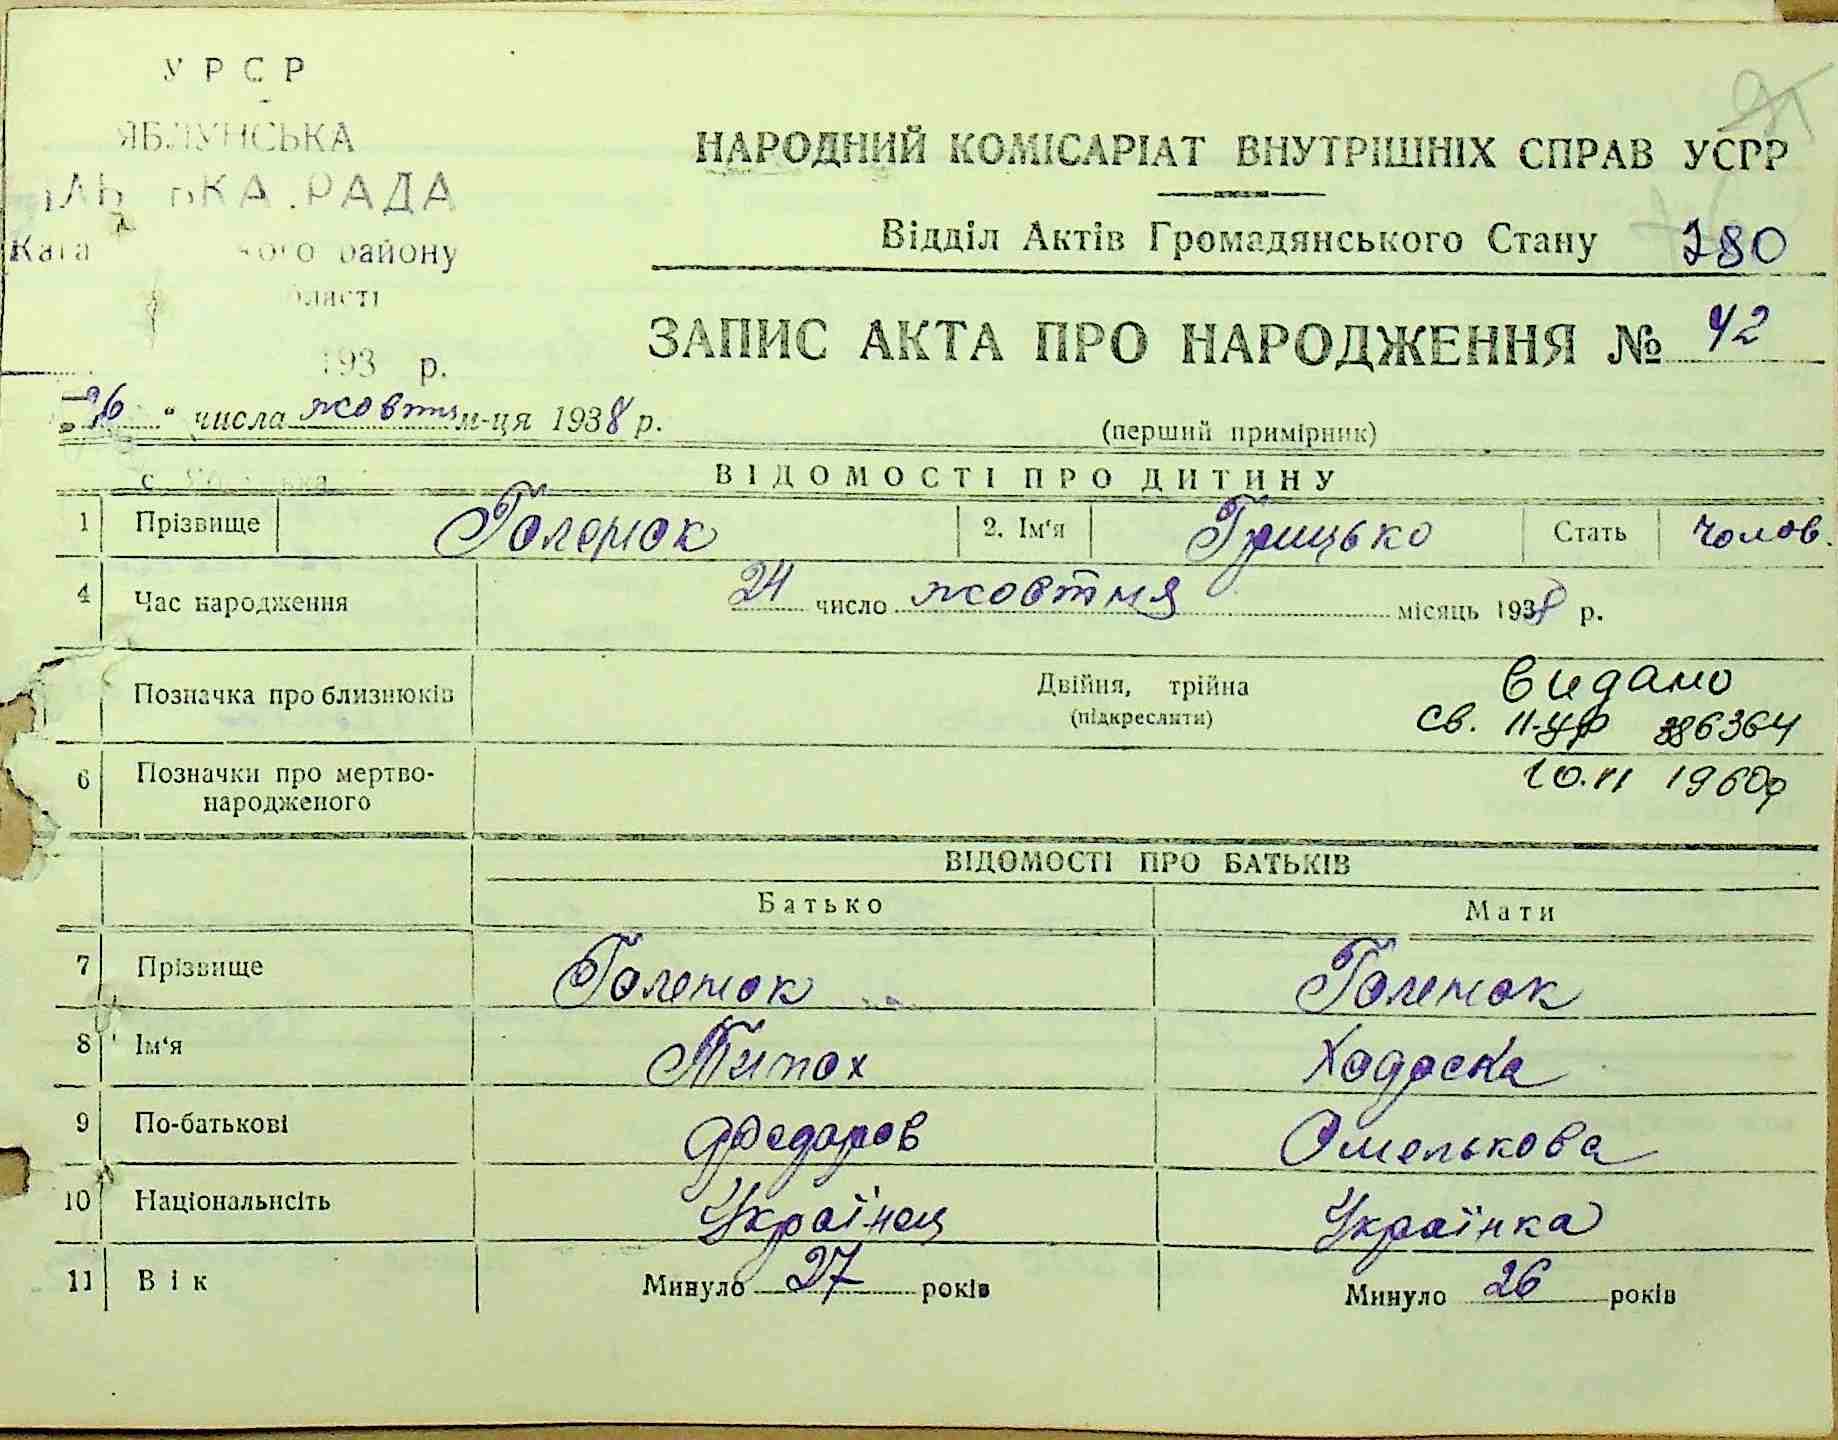 УРСР
ЯБЛУНСЬКА
РАДА
району
193 р.
НАРОДНИЙ КОМІСАРІАТ ВНУТРІШНІХ СПРАВ УСРР
Відділ Актів Громадянського Стану 280
ЗАПИС АКТА ПРО НАРОДЖЕННЯ № 42
„26“ числа жовтня м-ця 1938 р.
(перший примірник)
ВІДОМОСТІ ПРО ДИТИНУ
1 Прізвище Голенюк 2. Ім'я Грицько Стать чолов.
4 Час народження 24 число жовтня місяць 1938 р.
Позначка про близнюків Двійня, трійна
(підкреслити)
Видано
св. II-УР 386364
6 Позначки про мертво-
народженого
1960р
ВІДОМОСТІ ПРО БАТЬКІВ
Батько Мати
7 Прізвище Голенюк Голенюк
8 Ім'я Тимох Ходоска
9 По-батькові Федоров Омелькова
10 Національнсіть Українец Українка
11 Вік Минуло 27 років Минуло 26 років